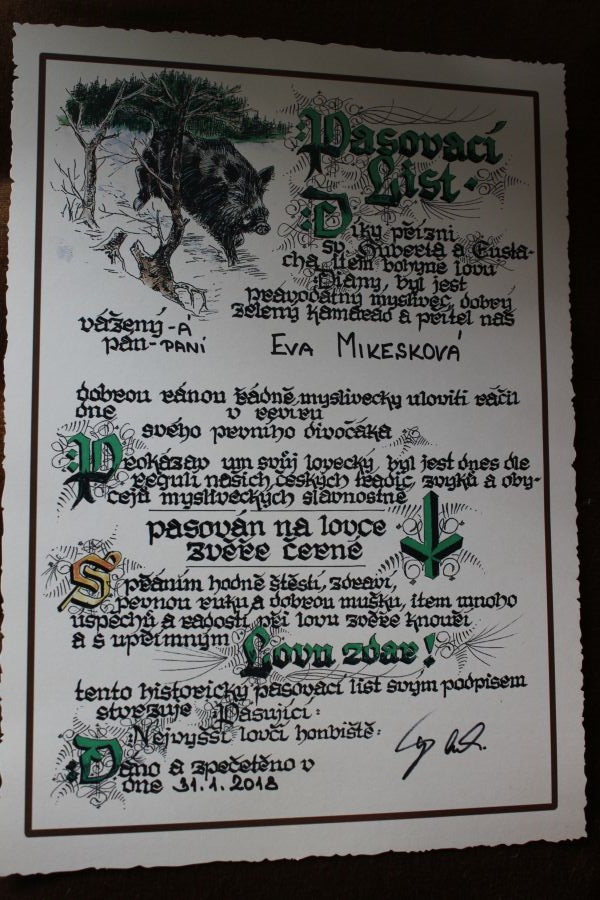 Pasovací
List
Díky přízni
sv. Huberta a Eusta-
cha, item bohyně lovu
Diany, byl jest
pravodatný myslivec, dobrý
zelený kamarád a přítel náš
vážený-Á
pan-PANÍ
EVA MIKESKOVÁ
dobrou ránou řádně myslivecky uloviti ráčil
dne v revíru
svého prvního divočáka
Prokázav um svůj lovecký, byl jest dnes dle
regulí našich českých tradic, zvyků a oby-
čejů mysliveckých slavnostně
pasován na lovce
zvěře černé
S přáním hodně štěstí, zdraví,
pevnou ruku a dobrou mušku, item mnoho
úspěchů a radosti při lovu zvěře knouří
a s upřímným
Lovu zdar!
tento historický pasovací list svým podpisem
stvrzuje Pasující:
Nejvyšší lovčí honbiště:
Dáno a zpečetěno v
dne 31.1.2018